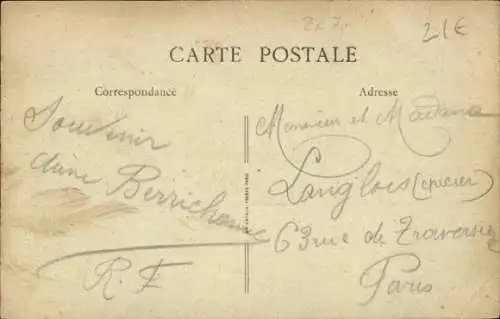 21€
CARTE POSTALE
Correspondance
Adresse
Souvenir
d'une Berrichonne
R. F
Monsieur et Madame
Langlois (epicier)
63 rue de Traversière
Paris